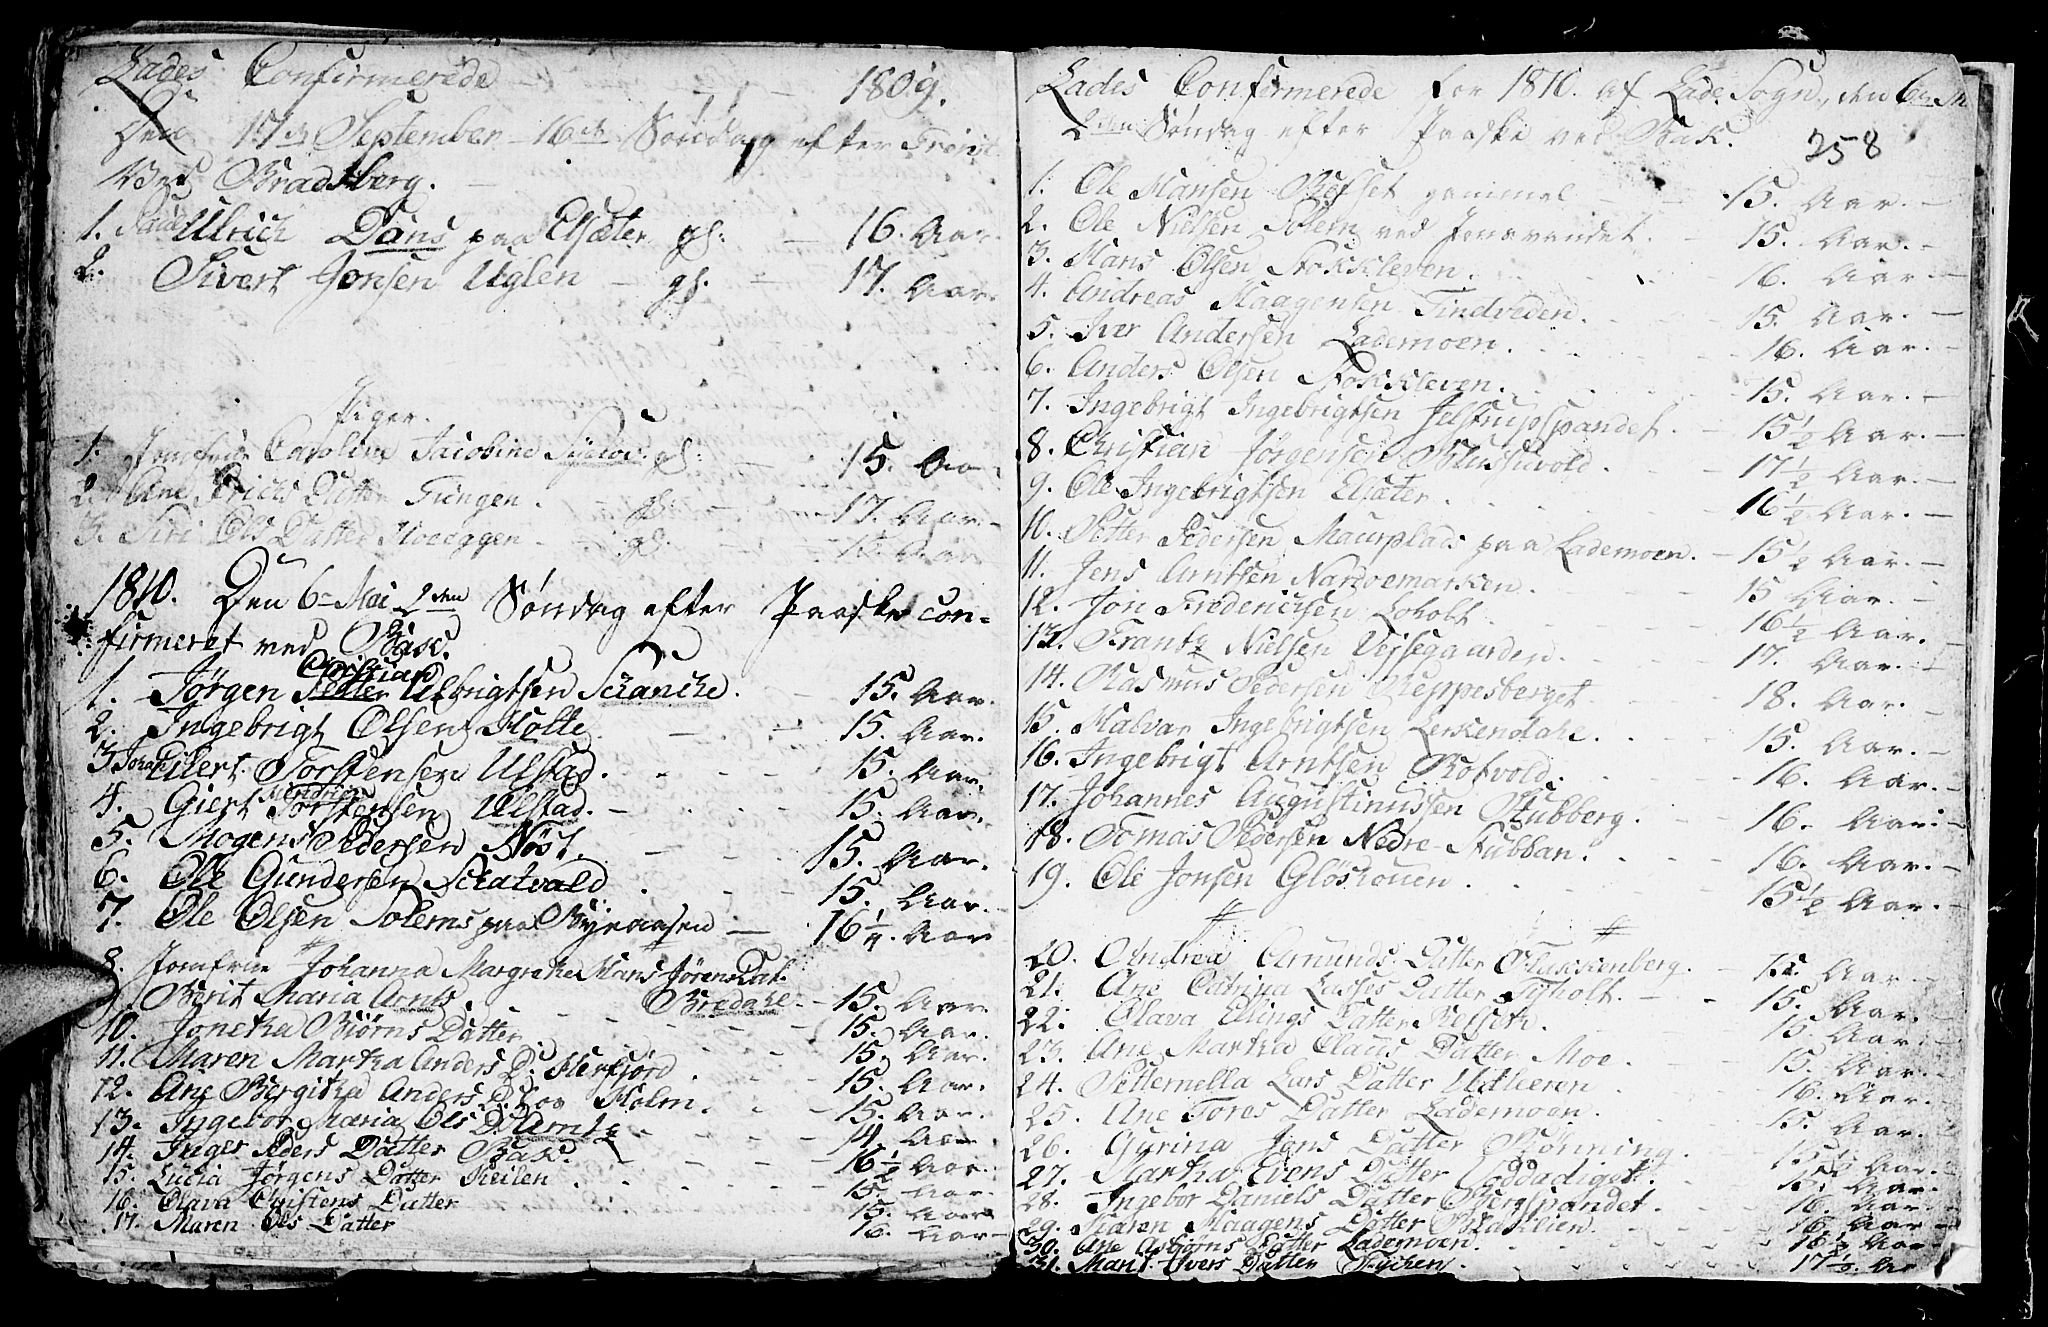 Lades Confirmerede 1809.
Den 17de September 16de Søndag efter Trinit
Ved Bradsberg.
1. Ulrich Døns paa Elsæter gl: 16. Aar.
2. Sivert Jonsen Uglen gl. 17. Aar.
Piger.
1. Jomfrue Caroline Jacobine gl: 15. Aar
2. Ane Erichs Datter Tungen. gl. 17. Aar.
3. Siri Ols Datter gl. Aar
1810. Den 6te Mai 2den Søndag efter Paaske con-
firmeret ved Bak.
Christian
1. Jørgen Petter Ulbrigtsen Schanche. 15. Aar.
2. Ingebrigt Olsen Holte. 15. Aar.
3. Johan Eilert Torstensen Ulstad. 15. Aar.
Hendrich
4. Giert Torstensen Ulstad. 15. Aar.
5. Mogens Pedersen Nøst. 15. Aar.
6. Ole Gundersen Schatvald. 15. Aar.
7. Ole Olsen Solems paa Byeaasen 16 1/4. Aar
8. Jomfrue Johanna Margretha Hans Jørens Dat.
Bredahl 15. Aar.
9. Berit Maria Arnts. 15. Aar.
10. Jonetha Biørns Datter. 15. Aar.
11. Maren Martha Anders D: Herfjord. 15. Aar.
12. Ane Bergitha Anders D: Holm. 15. Aar.
13. Ingebor Maria Ols D. 14. Aar.
14. Inger Peders Datter Bak. 16 1/2 Aar.
15. Lucia Jørgens Datter Keilen. 15. Aar.
16. Olava Christens Datter 15. Aar
17. Maren Ols Datter 16. Aar
Lades Confirmerede for 1810. af Lade Sogn, den 6te M
2den Søndag efter Paaske ved Bak.
258
1. Ole Hansen Refset gammel 15. Aar.
2. Ole Nielsen Solem ved Jonsvandet. 15. Aar.
3. Hans Olsen Stokkleven. 16. Aar.
4. Andreas Haagensen Tindveden. 15. Aar.
5. Iver Andersen Lademoen. 16. Aar.
6. Anders Olsen Stokkleven. 15. Aar.
7. Ingebrigt Ingebrigtsen Jelstrupspandet. 15 1/2 Aar.
8. Christian Jørgensen Blussuvold. 17 1/2 Aar.
9. Ole Ingebrigtsen Elsæter. 16 1/2 Aar.
10. Petter Pedersen Maurplads paa Lademoen. 15 1/2 Aar.
11. Jens Arntsen Nardoemarken. 15 Aar.
12. Jon Friderichsen Loholt. 16 1/2 Aar.
13. Frantz Nielsen Veisegaarden. 17. Aar.
14. Rasmus Pedersen Reppesberget. 18. Aar.
15. Halvar Ingebrigtsen Lerkendahl. 15. Aar.
16. Ingebrigt Arntsen Rotvold. 16. Aar.
17. Johannes Augustinussen Stubberg. 16. Aar.
18. Tomas Pedersen Nedre Stubban. 16. Aar.
19. Ole Jonsen Gløshouen. 15 1/2 Aar.
20. Andrea Amunds Datter Blakkenberg. 15. Aar.
21. Ane Catrina Lasses Datter Tyholt. 15. Aar.
22. Olava Elings Datter Refseth. 15. Aar.
23. Ane Martha Claus Datter Moe. 15. Aar.
24. Petternella Lars Datter 16. Aar.
25. Ane Tores Datter Lademoen. 15. Aar.
26. Gurina Jons Datter Rønning. 15 1/2 Aar.
27. Martha Evens Datter Loddadiget. 15. Aar.
28. Ingebor Daniels Datter Bergspandet. 16. Aar.
29. Karen Haagens Datter Baklien. 16. Aar
30. Ane Asbjørns Datter Lademoen. 16 1/2 Aar
31. Marit Ivers Datter Tychen. 17 1/2. Aar